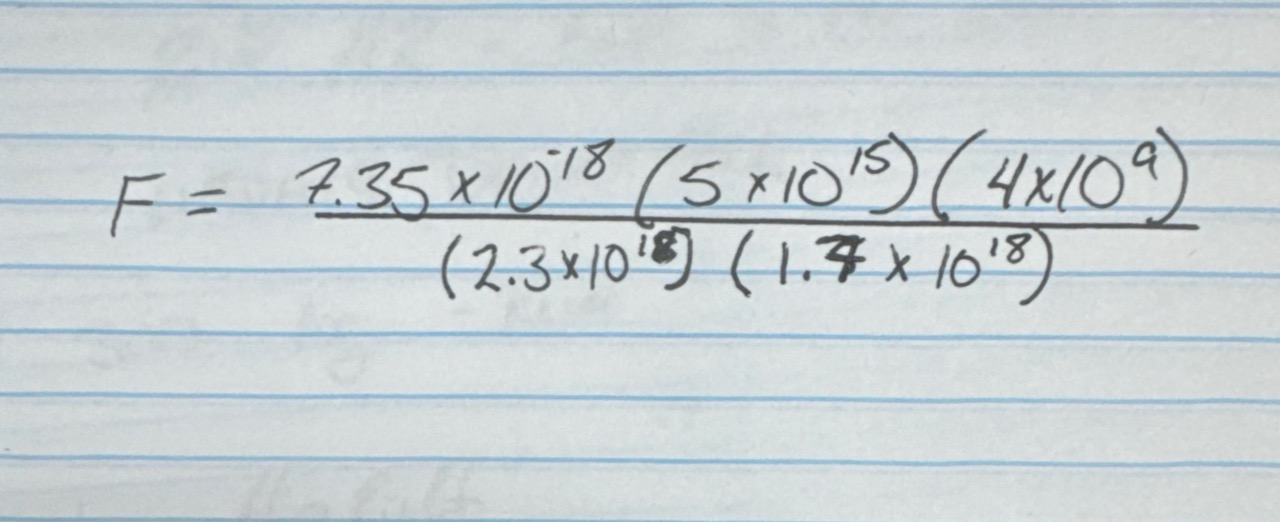 F = 7.35 × 10⁻¹⁸ (5 × 10¹⁵) (4 × 10⁹)
(2.3 × 10¹⁸) (1.7 × 10¹⁸)